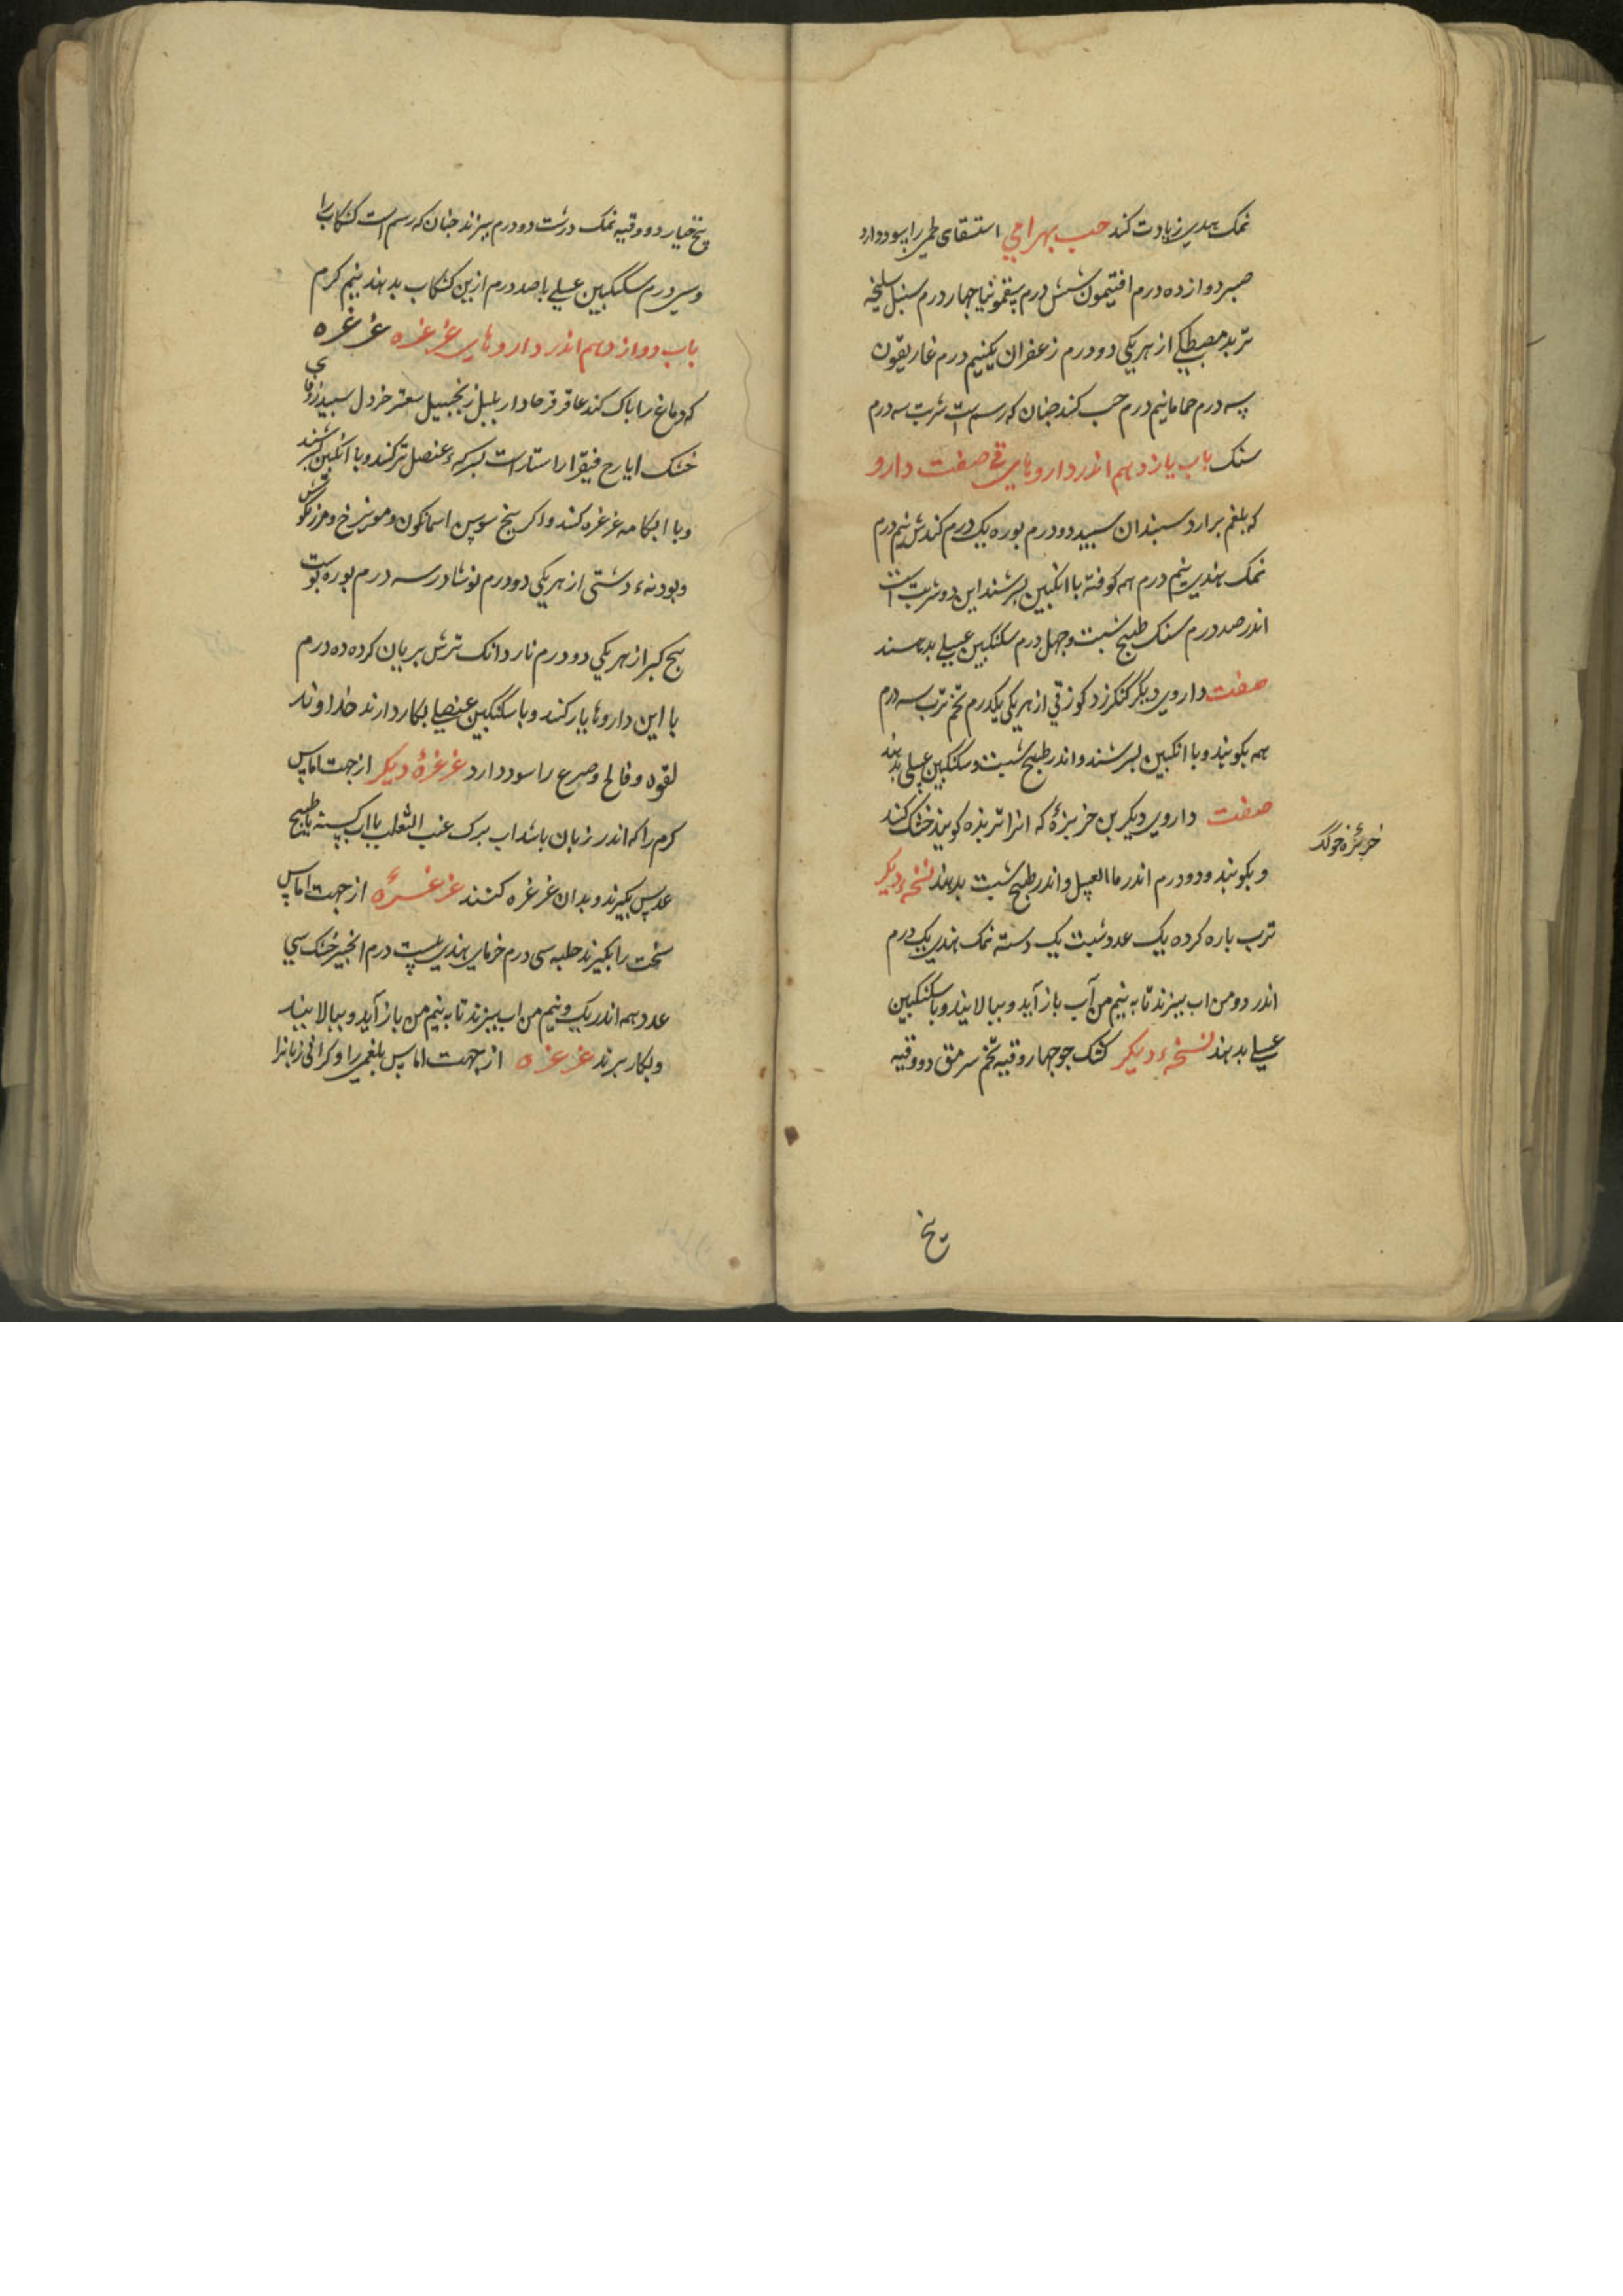 نمک هندی زیادت کند حب بهرامی استسقای طمی را سود دارد
صبر دوازده درم افتیمون شش درم سقمونیا چهار درم سنبل سلیخه
تربد مصطکی از هریکی دو درم زعفران یکنیم درم غاریقون
سه درم حماما نیم درم حب کنند جنان که رسم است شربت سه درم
سنک باب یازدهم اندر داروهای قی صفت دارو
که بلغم برارد سبندان سبید دو درم بوره یک درم کندش نیم درم
نمک هندی نیم درم همه کوفته با انکبین بسرشند این دو شربت است
اندر صد درم سنک طبیخ شبت وچهل درم سکنکبین عسلی بدهند
صفت داروی دیگر کنکرزد کوز قی از هریکی یکدرم تخم ترب سه درم
همه بکوبند و با انکبین بسرشند و اندر طبیخ شبت و سکنکبین عسلی بدهند
صفت داروی دیکر بن خربزهٔ که انرا تربذه کویند خشک کنند
و بکوبند و دو درم اندر ما العسل و اندر طبیخ شبت بدهند نسخهٔ دیکر
ترب باره کرده یک عدد شبت یک دسته نمک هندی یک درم
اندر دو من اب ببزند تا به نیم من آب باز آید و ببالایند و با سکنکبین
عسلی بدهند نسخهٔ دیکر کشک جو چهار وقیه تخم سرمق دو وقیه
یخ
بیخ خیار دو وقیه نمک درشت دو درم ببزند جنان که رسم است کشکاب را
و سی درم سکنکبین عسلی با صد درم ازین کشکاب بدهند نیم کرم
باب دوازدهم اندر داروهای غرغره غرغره
که دماغ را باک کند عاقرقرحا داربلبل زنجبیل سعتر خردل سبید زوفای
خشک ایارج فیقرا راستاراست بسرکهٔ عنصل تر کنند و با انکبین بسرشند
و با ابکامه غرغره کنند و اکر بیخ سوسن اسمانکون و مویزج و مرزنکوش
و بودنهٔ دشتی از هریکی دو درم نوشادر سه درم بوره بوست
بیخ کبر از هریکی دو درم ناردانک ترش بریان کرده ده درم
با این داروها یار کنند و با سکنکبین عنصلی بکار دارند خداوند
لقوه و فالج و صرع را سود دارد غرغرهٔ دیکر از جهت اماس
کرم را که اندر زبان باشد اب برک عنب الثعلب با اب کسنه با طبیخ
عدس بکیرند و بدان غرغره کنند غرغره از جهت اماس
سخت را بکیرند حلبه سی درم خرمای هندی بیست درم انجیر خشک سی
عدد همه اندر یک و نیم من اب ببزند تا به نیم من باز آید و ببالایند
و بکار برند غرغره از جهت اماس بلغمی را و کرانی زبانرا